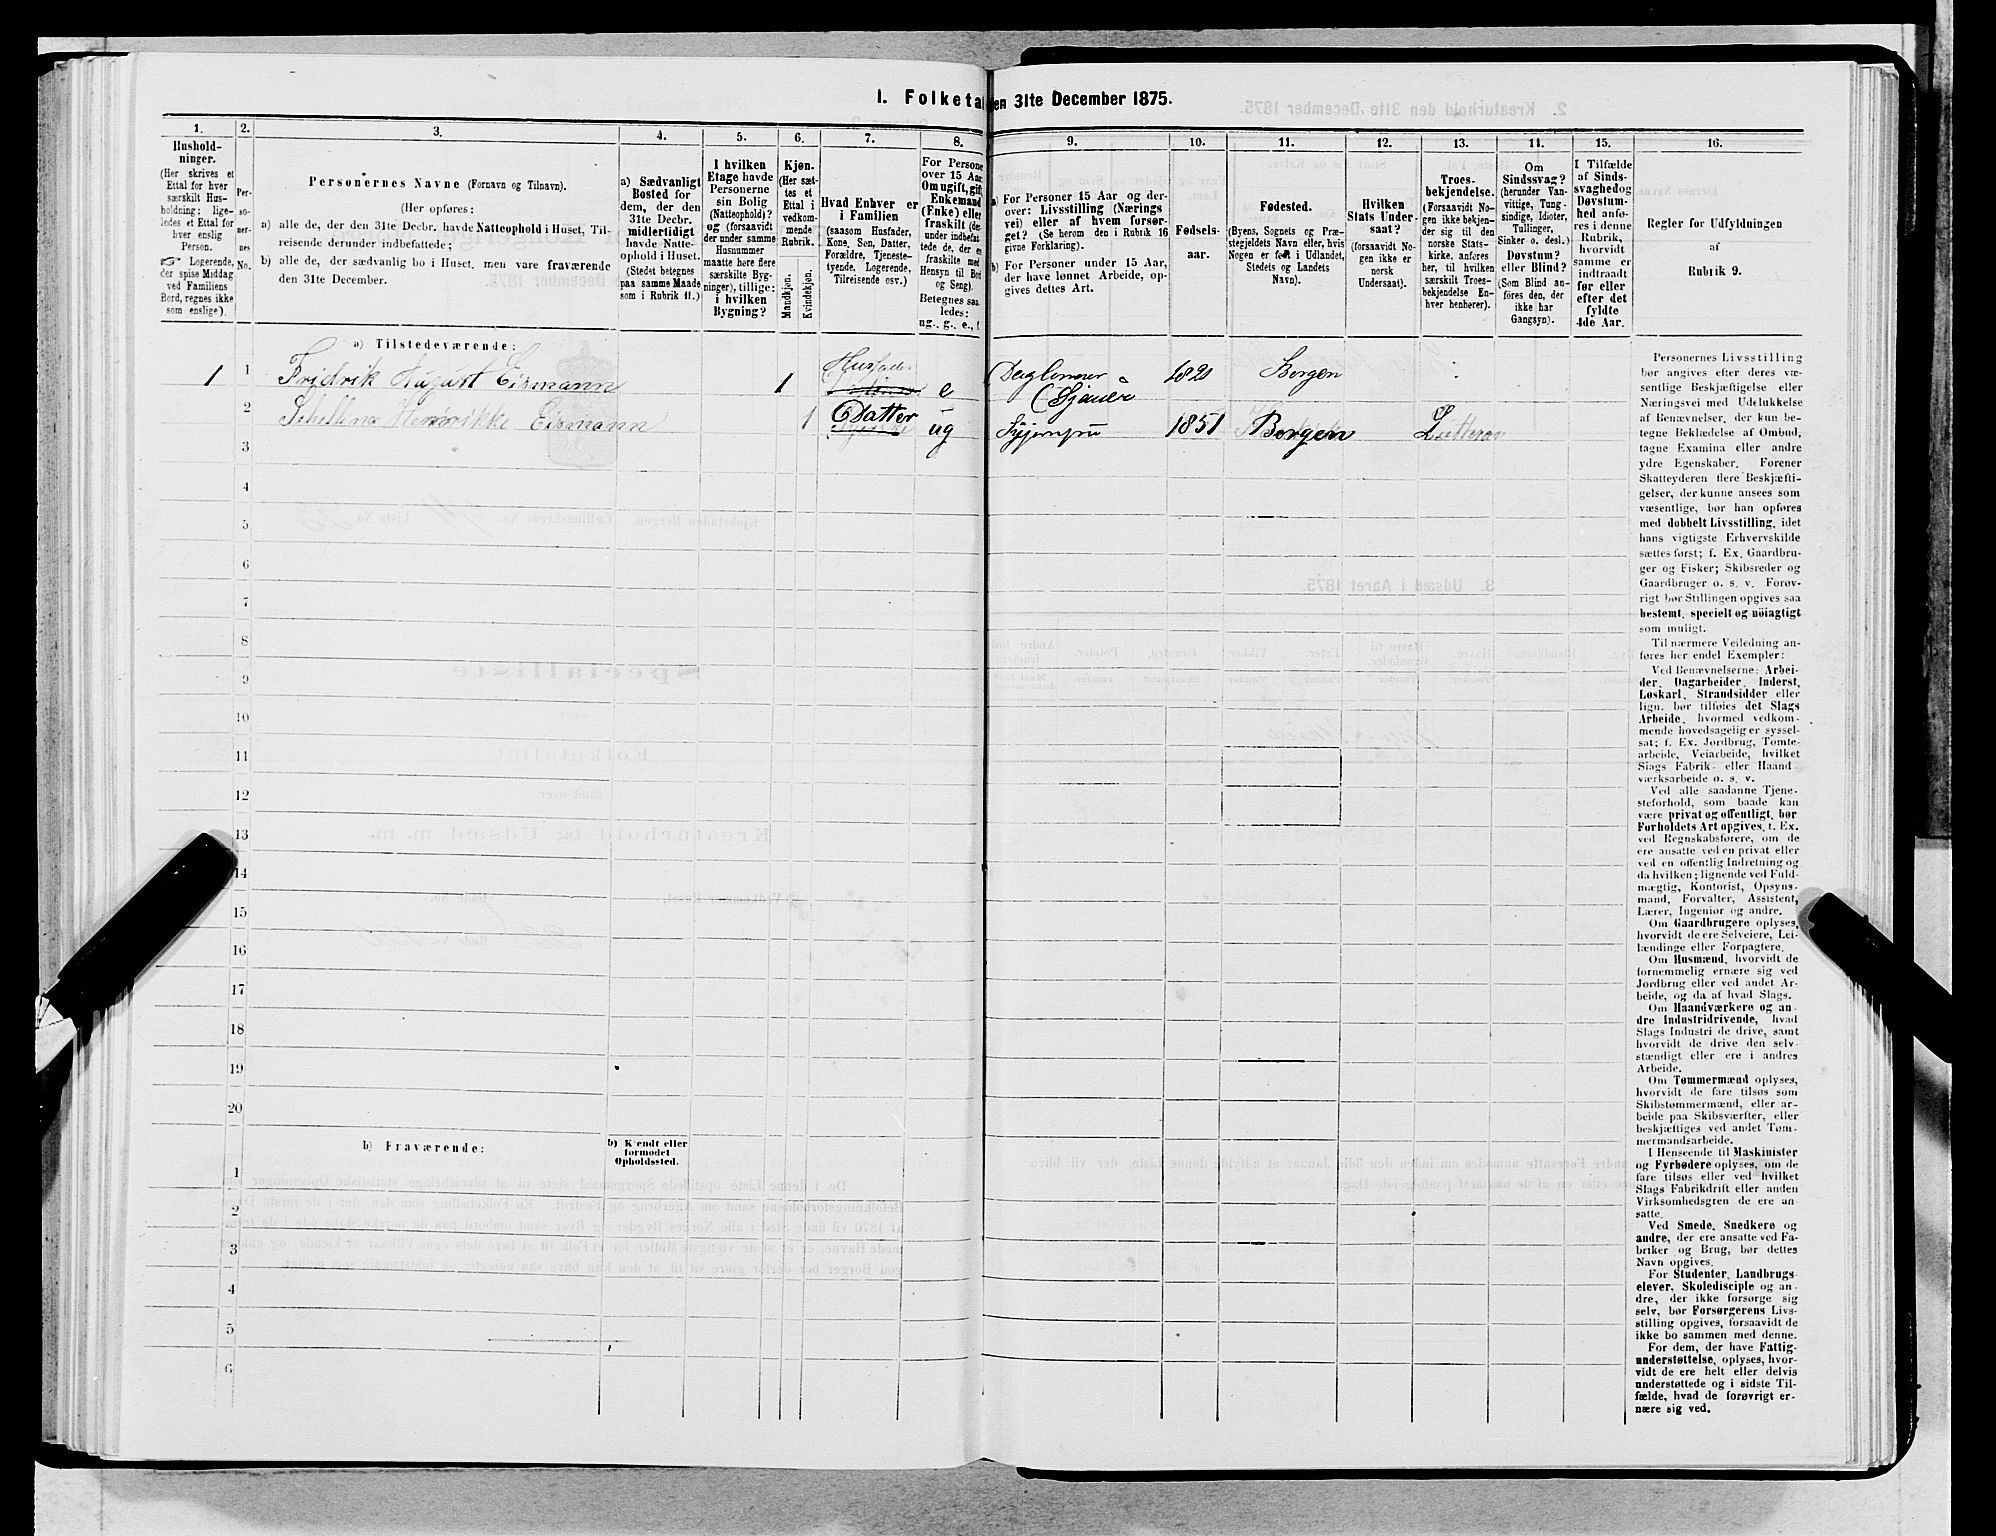 1. Folketa en 31te December 1875.
1.
Hushold-
ninger.
(Her skrives et
Ettal for hver
særskilt Hus-
holdning; lige-
ledes et Ettal for
hver enslig
Person.
☞ Logerende,
der spise Middag
ved Familiens
Bord, regnes ikke
som enslige).
2.
Per-
so-
ner-
nes
No.
3.
Personernes Navne (Fornavn og Tilnavn).
(Her opføres:
a) alle de, der den 31te Decbr. havde Natteophold i Huset, Til-
reisende derunder indbefattede;
b) alle de, der sædvanlig bo i Huset, men vare fraværende
den 31te December.
4.
a) Sædvanligt
Bosted for
dem, der den
31te Decbr.
midlertidigt
havde Natte-
ophold i Huset.
(Stedet betegnes
paa samme Maade
som i Rubrik 11.)
5.
I hvilken
Etage havde
Personerne
sin Bolig
(Natteophold)?
og (forsaavidt
der under samme
Husnummer
maatte høre flere
særskilte Byg-
ninger), tillige:
i hvilken
Bygning?
6.
Kjøn.
(Her sæt-
tes et
Ettal i
vedkom-
mende
Rubrik.
Mandkjøn.
Kvindekjøn.
7.
Hvad Enhver er
i Familien
(saasom Husfader,
Kone, Søn, Datter,
Forældre, Tjeneste-
tyende, Logerende,
Tilreisende osv.)
8.
For Persone
over 15 Aar
Om ugift, gift
Enkemand
(Enke) eller
fraskilt (der-
under indbefat-
tede de, der er
fraskilte med
Hensyn til Bord
og Seng).
Betegnes saa
ledes:
ug., g., e., f.
9.
a) For Personer 15 Aar og der-
over: Livsstilling (Nærings
vei) eller af hvem forsør-
get? (Se herom den i Rubrik 16
givne Forklaring).
b) For Personer under 15 Aar,
der have lønnet Arbeide, op-
gives dettes Art.
10.
Fødsels-
aar.
11.
Fødested.
(Byens, Sognets og Præ-
stegjeldets Navn eller, hvis
Nogen er født i Udlandet,
Stedets og Landets
Navn).
12.
Hvilken
Stats Under-
saat?
(forsaavidt No-
gen ikke er
norsk
Undersaat).
13.
Troes-
bekjendelse.
(Forsaavidt No-
gen ikke bekjen-
der sig til den
norske Stats-
kirke, anføres
her, til hvilken
særskilt Troes-
bekjendelse En-
hver henhører).
14.
Om
Sindssvag?
(herunder Van-
vittige, Tung-
sindige, Idioter,
Tullinger,
Sinker o. desl.)
Døvstum?
eller Blind?
(Som Blind an-
føres den, der
ikke har
Gangsyn).
15.
I Tilfælde
af Sinds-
svaghed og
Døvstum-
hed anfø-
res i denne
Rubrik,
hvorvidt
samme er
indtraadt
før eller
efter det
fyldte
4de Aar.
16.
Regler for Udfyldningen
af
Rubrik 9.
a) Tilstedeværende:
1 1 Fridrik August Eismann 1 Husfader e Daglønner Sjauer 1821 Bergen
2 Henrikke Eismann 1 Datter ug 1851 Bergen
3
4
5
6
7
8
9
10
11
12
13
14
15
16
17
18
19
20
b) Fraværende:
b) Kjendt eller
formodet
Opholdssted.
1
2
3
4
5
6
Personernes Livsstilling
bør angives efter deres væ-
sentlige Beskjæftigelse eller
Næringsvei med Udelukkelse
af Benævnelser, der kun be-
tegne Beklædelse af Ombud,
tagne Examina eller andre
ydre Egenskaber. Forener
Skatteyderen flere Beskjæfti-
gelser, der kunne ansees som
væsentlige, bør han opføres
med dobbelt Livsstilling, idet
hans vigtigste Erhvervskilde
sættes først; f. Ex. Gaardbru-
ger og Fisker; Skibsreder og
Gaardbruger o. s. v. Forøv-
rigt bør Stillingen opgives saa
bestemt, specielt og nøiagtigt
som muligt.
Til nærmere Veiledning an-
føres her endel Exempler:
Ved Benævnelserne: Arbei-
der, Dagarbeider, Inderst,
Løskarl, Strandsidder eller
lign. bør tilføies det Slags
Arbeide, hvormed vedkom-
mende hovedsagelig er syssel-
sat; f. Ex. Jordbrug, Tomte-
arbeide, Veiarbeide, hvilket
Slags Fabrik- eller Haand-
værksarbeide o. s. v.
Ved alle saadanne Tjene-
steforhold, som baade kan
være privat og offentligt, bør
Forholdets Art opgives, t. Ex.
ved Regnskabsførere, om de
ere ansatte ved en privat eller
ved en offentlig Indretning og
da hvilken; lignende ved Fuld-
mægtig, Kontorist, Opsyns-
mand, Forvalter, Assistent,
Lærer, Ingeniør og andre.
Om Gaardbrugere oplyses,
hvorvidt de ere Selveiere, Lei-
lændinge eller Forpagtere.
Om Husmænd, hvorvidt de
fornemmelig ernære sig ved
Jordbrug eller ved andet Ar-
beide, og da af hvad Slags.
Om Haandværkere og an-
dre Industridrivende, hvad
Slags Industri de drive, samt
hvorvidt de drive den selv-
stændigt eller ere i andres
Arbeide.
Om Tømmermænd oplyses,
hvorvidt de fare tilsøs som
Skibstømmermænd, eller ar-
beide paa Skibsværfter, eller
beskjæftiges ved andet Tøm-
mermandsarbeide.
I Henseende til Maskinister
og Fyrbødere oplyses, om de
fare tilsøs eller ved hvilket
Slags Fabrikdrift eller anden
Virksomhedsgren de ere an-
satte.
Ved Smede, Snedkere og
andre, der ere ansatte ved Fa-
briker og Brug, bør dettes
Navn opgives.
For Studenter, Landbrugs-
elever, Skoledisciple og an-
dre, der ikke forsørge sig
selv, bør Forsørgerens Livs-
stilling opgives, forsaavidt de
ikke bo sammen med denne.
For dem, der have Fattig-
understøttelse, oplyses, hvor-
vidt de ere helt eller delvis
understøttede og i sidste Til-
fælde, hvad de forøvrigt er-
nære sig ved.